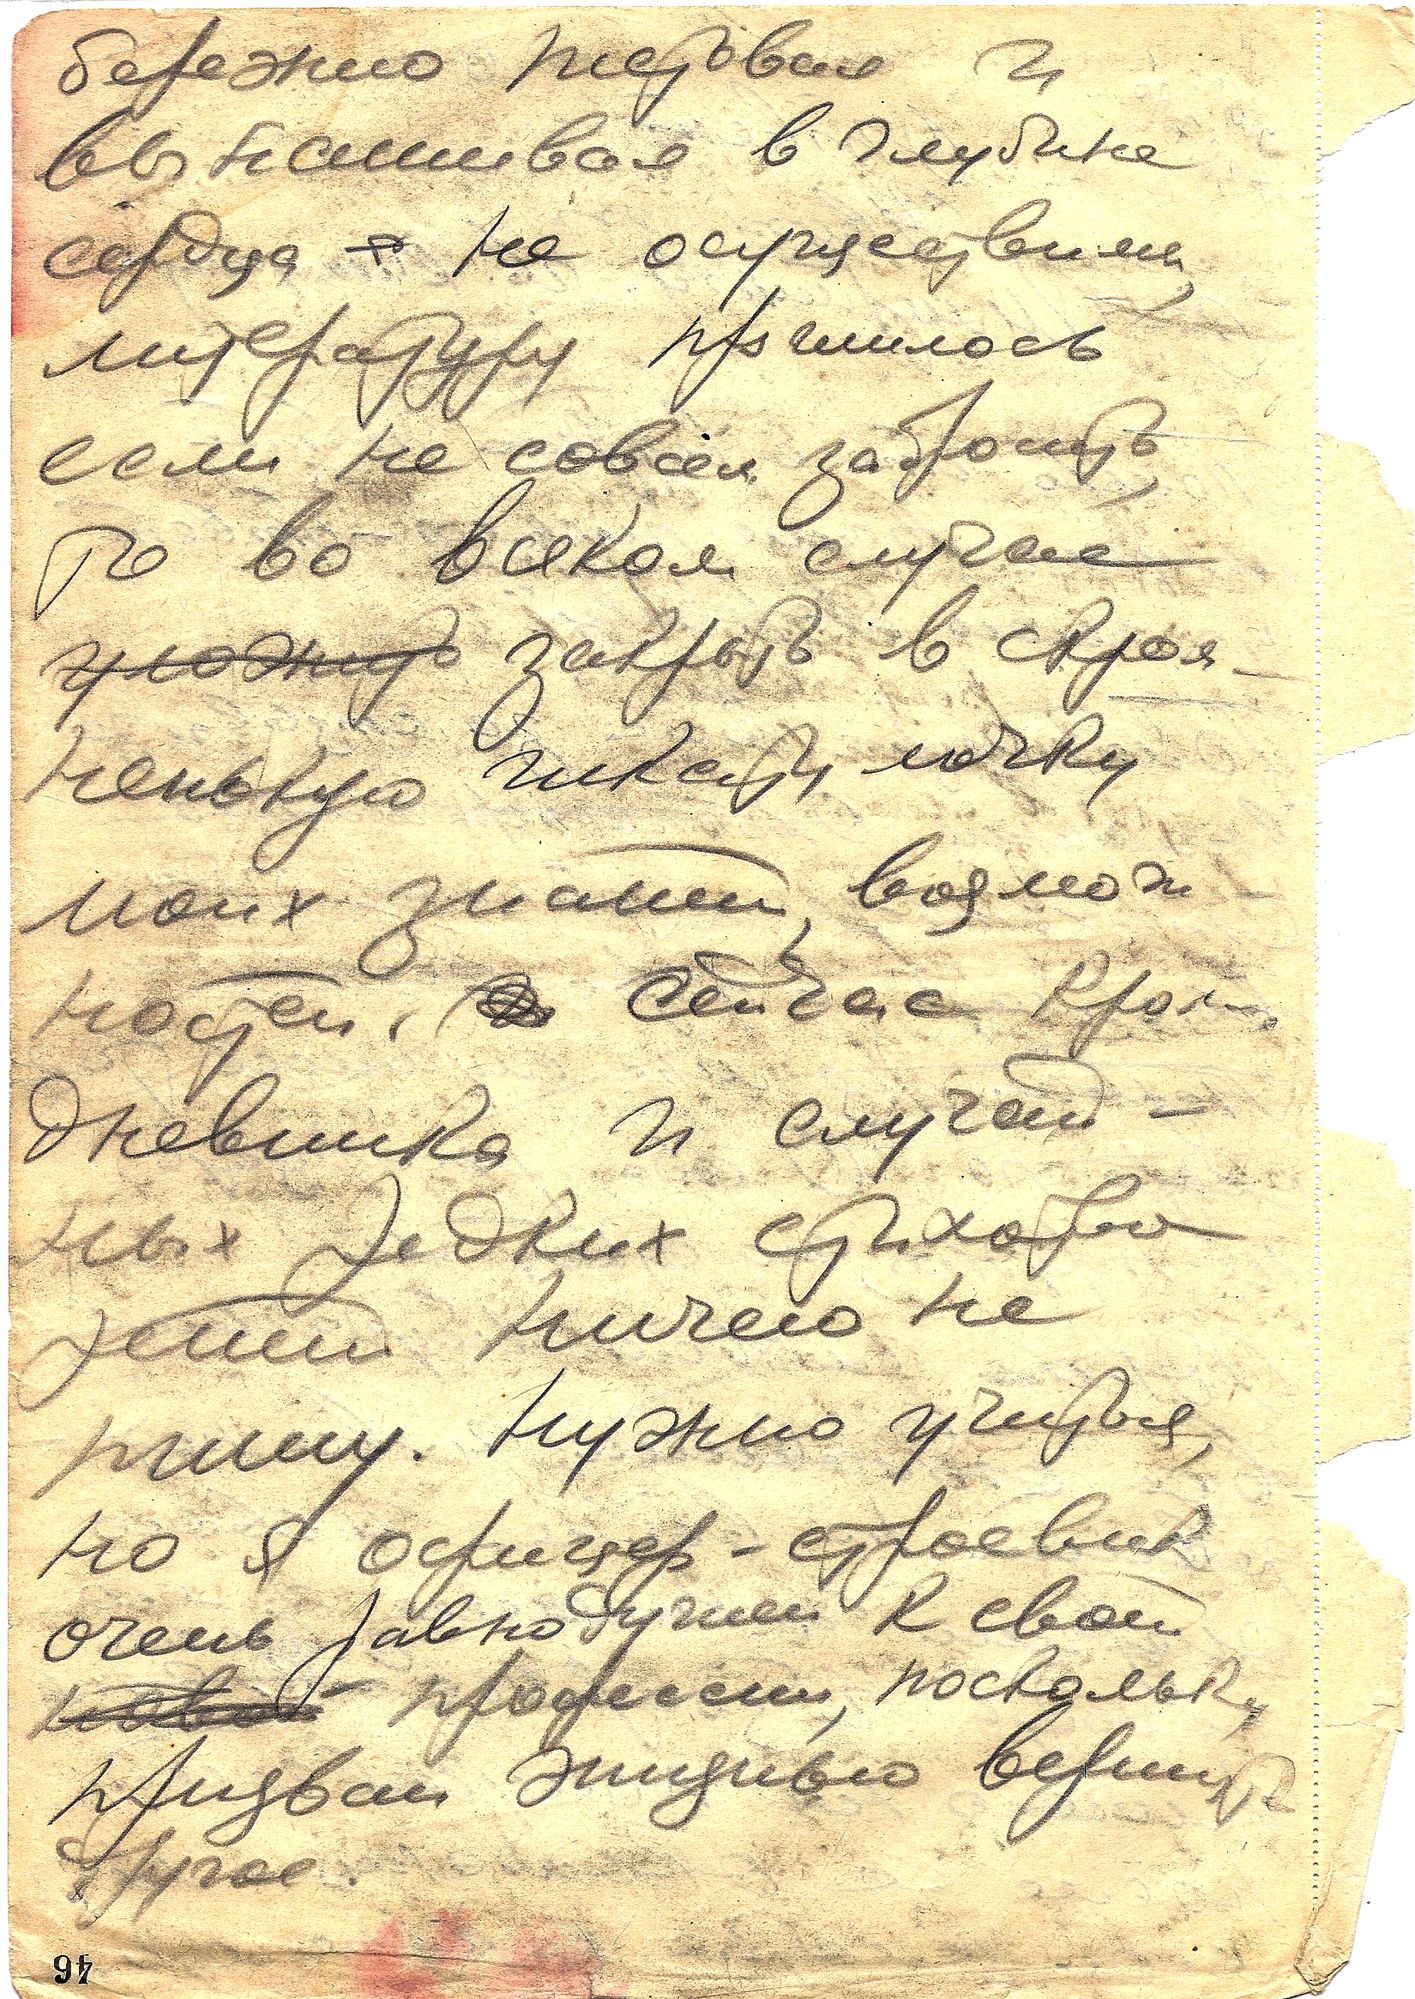 бережно питовал и
вынашивал в глубине
сердца не осуществил,
литературу пришлось
если не совсем забросить,
то во всяком случае
уложить закрыть в скром-
ненькую шкатулочку
моих знаний, возмож
ностей. Сейчас кроме
дневника и случай-
ных редких стихотво
рений ничего не
пишу. Нужно учиться,
но я офицер-строевик
очень равнодушен к своей
новой профессии, поскольку
призван жизнью вершить
другое.
46